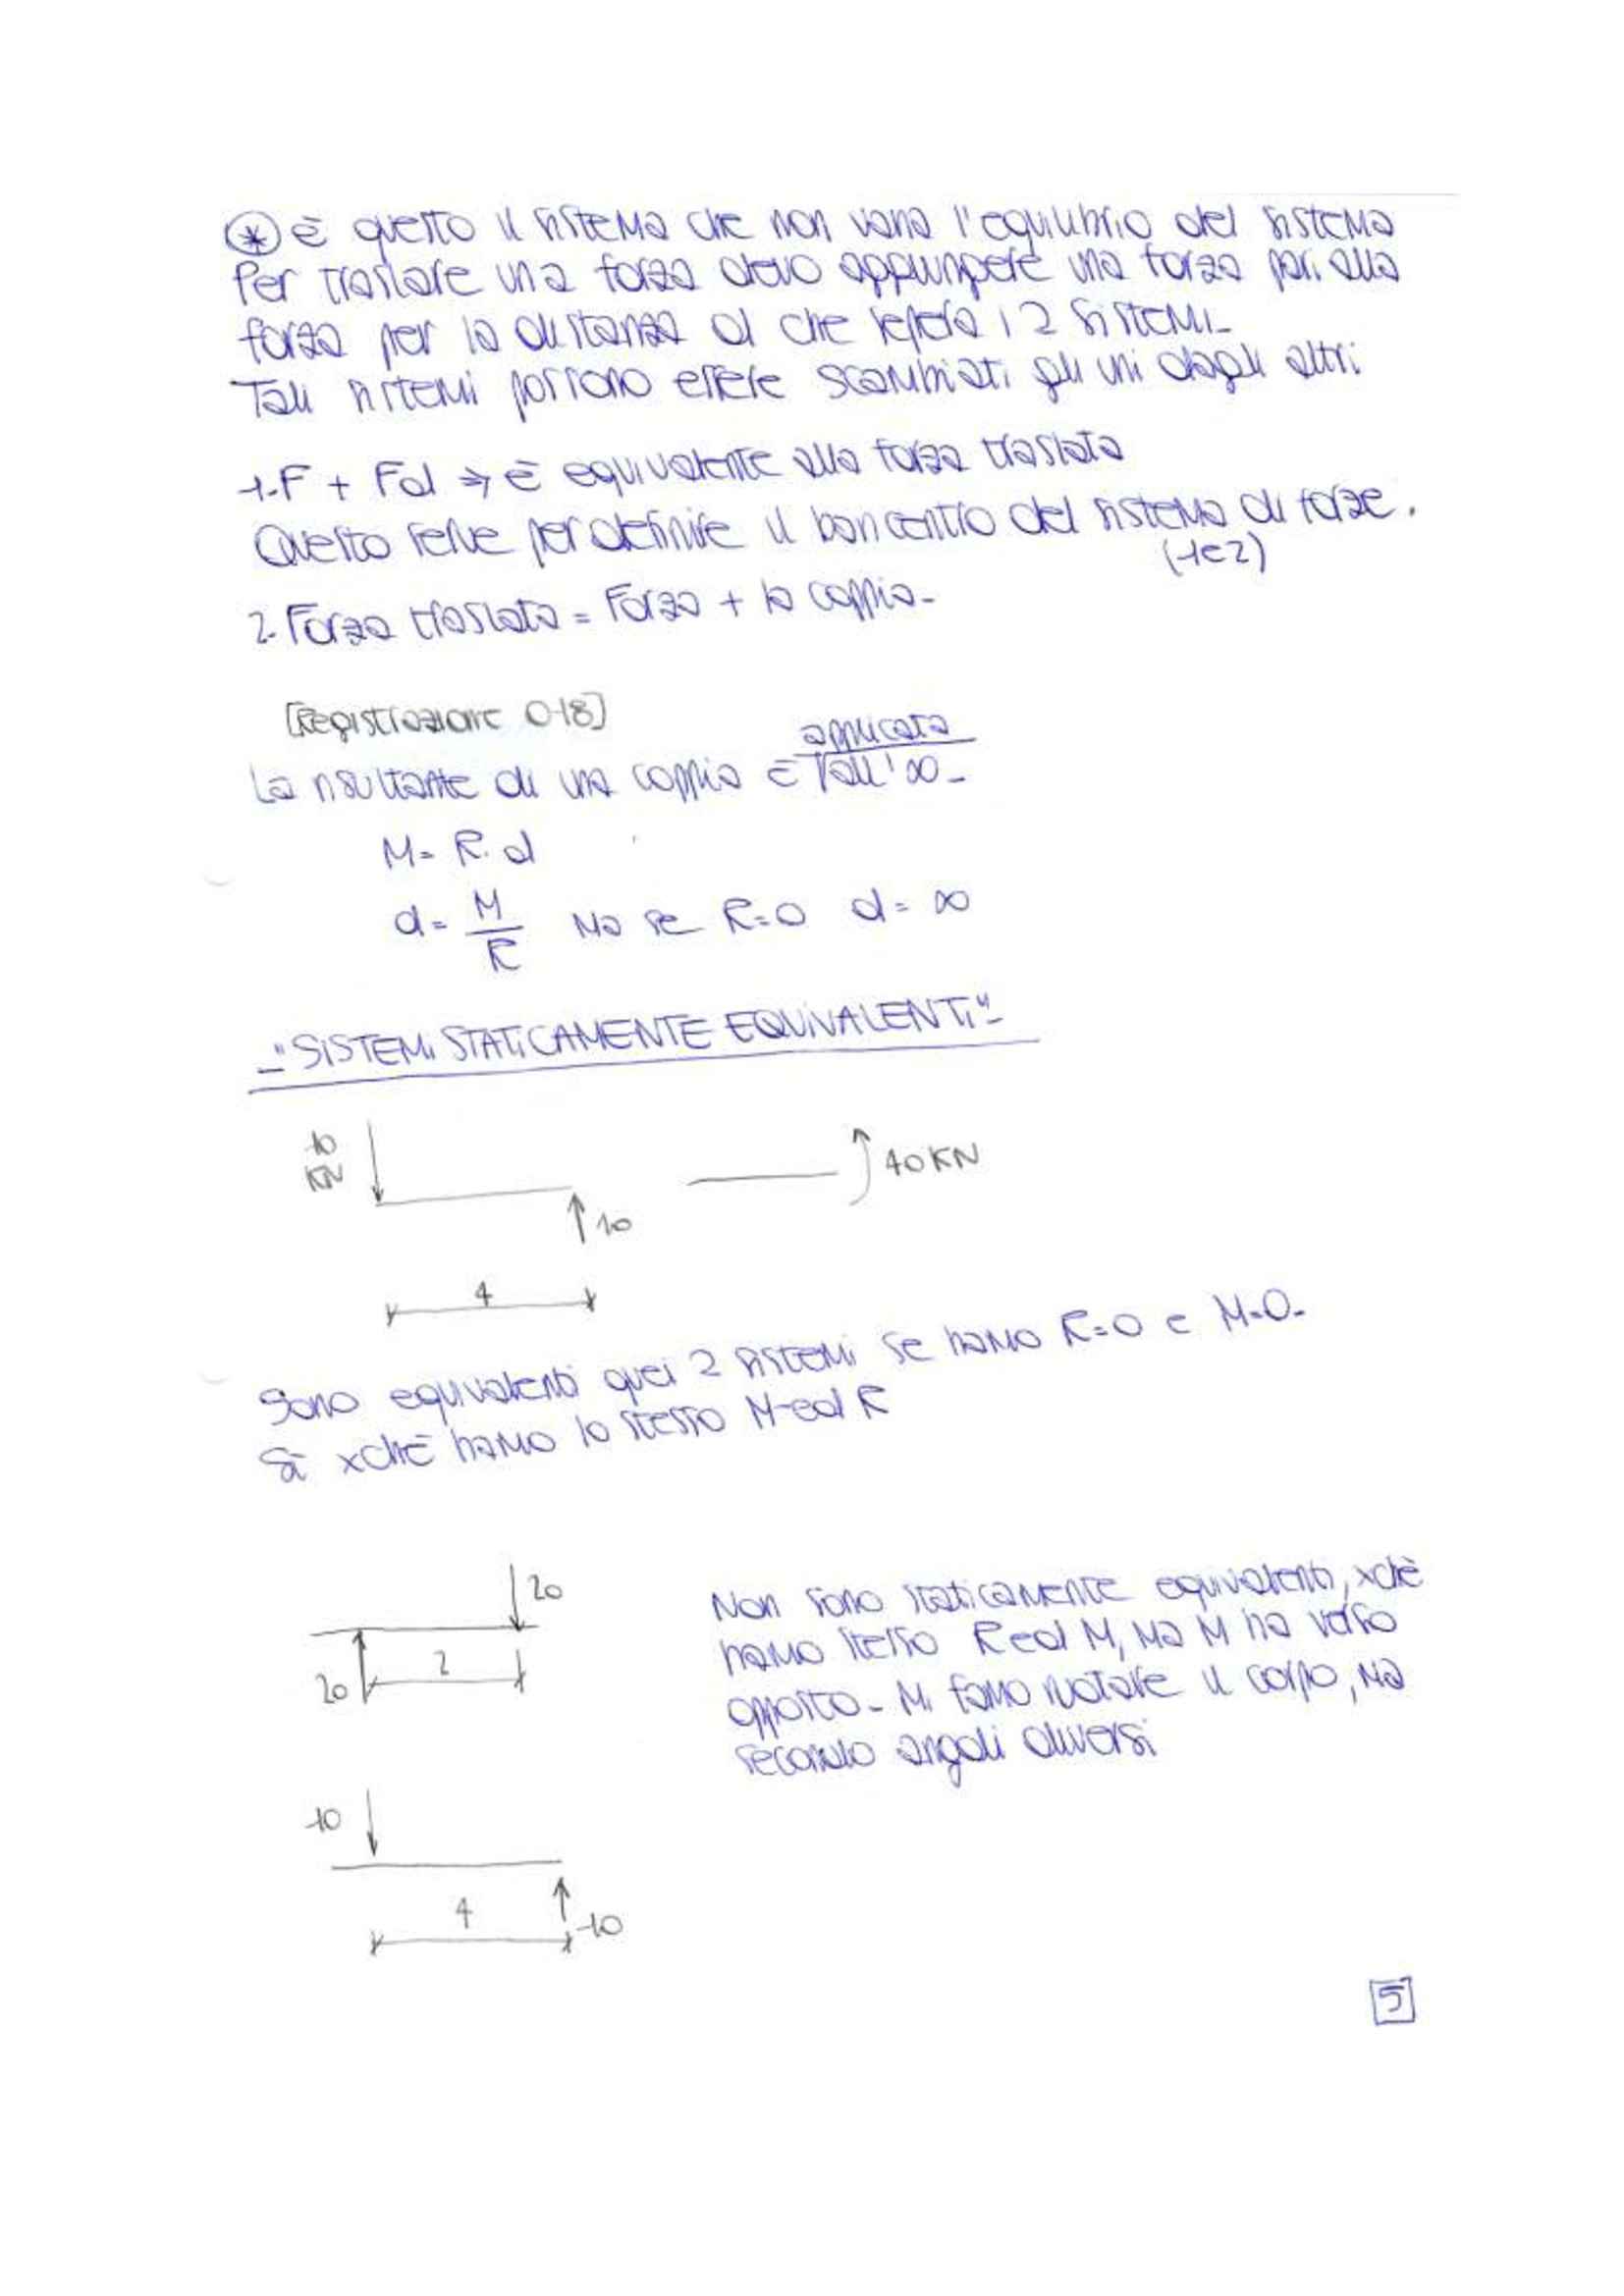 ⊛ è questo il sistema che non varia l'equilibrio del sistema
Per traslare una forza devo aggiungere una forza pari alla
forza per la distanza d che separa i 2 sistemi-
Tali sistemi possono essere scambiati gli uni dagli altri
1. F + Fd ⇒ è equivalente alla forza traslata
Questo serve per definire il baricentro del sistema di forze.
(1e2)
2. Forza traslata = Forza + la coppia-
[Registrazione 018]
applicata
La risultante di una coppia è all'∞-
M= R. d
d= M/R ma se R=0 d= ∞
-"SISTEMI STATICAMENTE EQUIVALENTI"-
10
KN
40 KN
10
4
Sono equivalenti quei 2 sistemi se hanno R=0 e M=0-
Sì xchè hanno lo stesso M ed R
20
2
20
Non sono staticamente equivalenti, xchè
hanno stesso R ed M, ma M ha verso
opposto- Mi fanno ruotare il corpo, ma
secondo angoli diversi
10
4
10
5